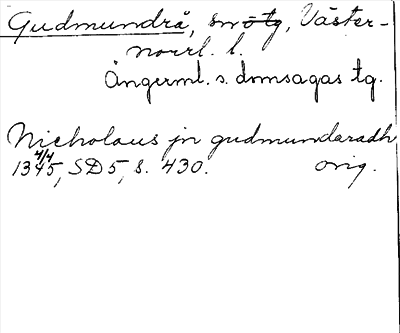 Gudmundrå, sn o tg, Väster-
norrl. l.
Ångerml. s. domsagas tg.
Nicholaus jn gudmundaradh
1345 4/4, SD 5, s. 430. orig.